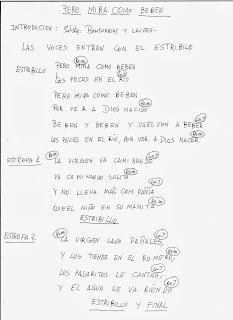 PERO MIRA COMO BEBEN
INTRODUCION: Solista: BANDURRIAS Y LAUDES-
LAS VOCES ENTRAN CON EL ESTRIBILLO
ESTRIBILLO PERO MIRA COMO BEBEN
LOS PECES EN EL RIO
PERO MIRA COMO BEBEN
POR VER A DIOS NACIDO
BEBEN Y BEBEN Y VUELVEN A BEBER
LOS PECES EN EL RÍO, POR VER A DIOS NACER
ESTROFA 1 LA VIRGEN VA CAMINANDO
VA CAMINANDO SOLITA
Y NO LLEVA MÁS COMPAÑIA
QUE EL NIÑO EN SU MANITA
ESTRIBILLO
ESTROFA 2 LA VIRGEN LAVA PAÑALES
Y LOS TIENDE EN EL ROMERO,
LOS PAJARITOS LE CANTAN,
Y EL AGUA SE VA RIENDO
ESTRIBILLO Y FINAL